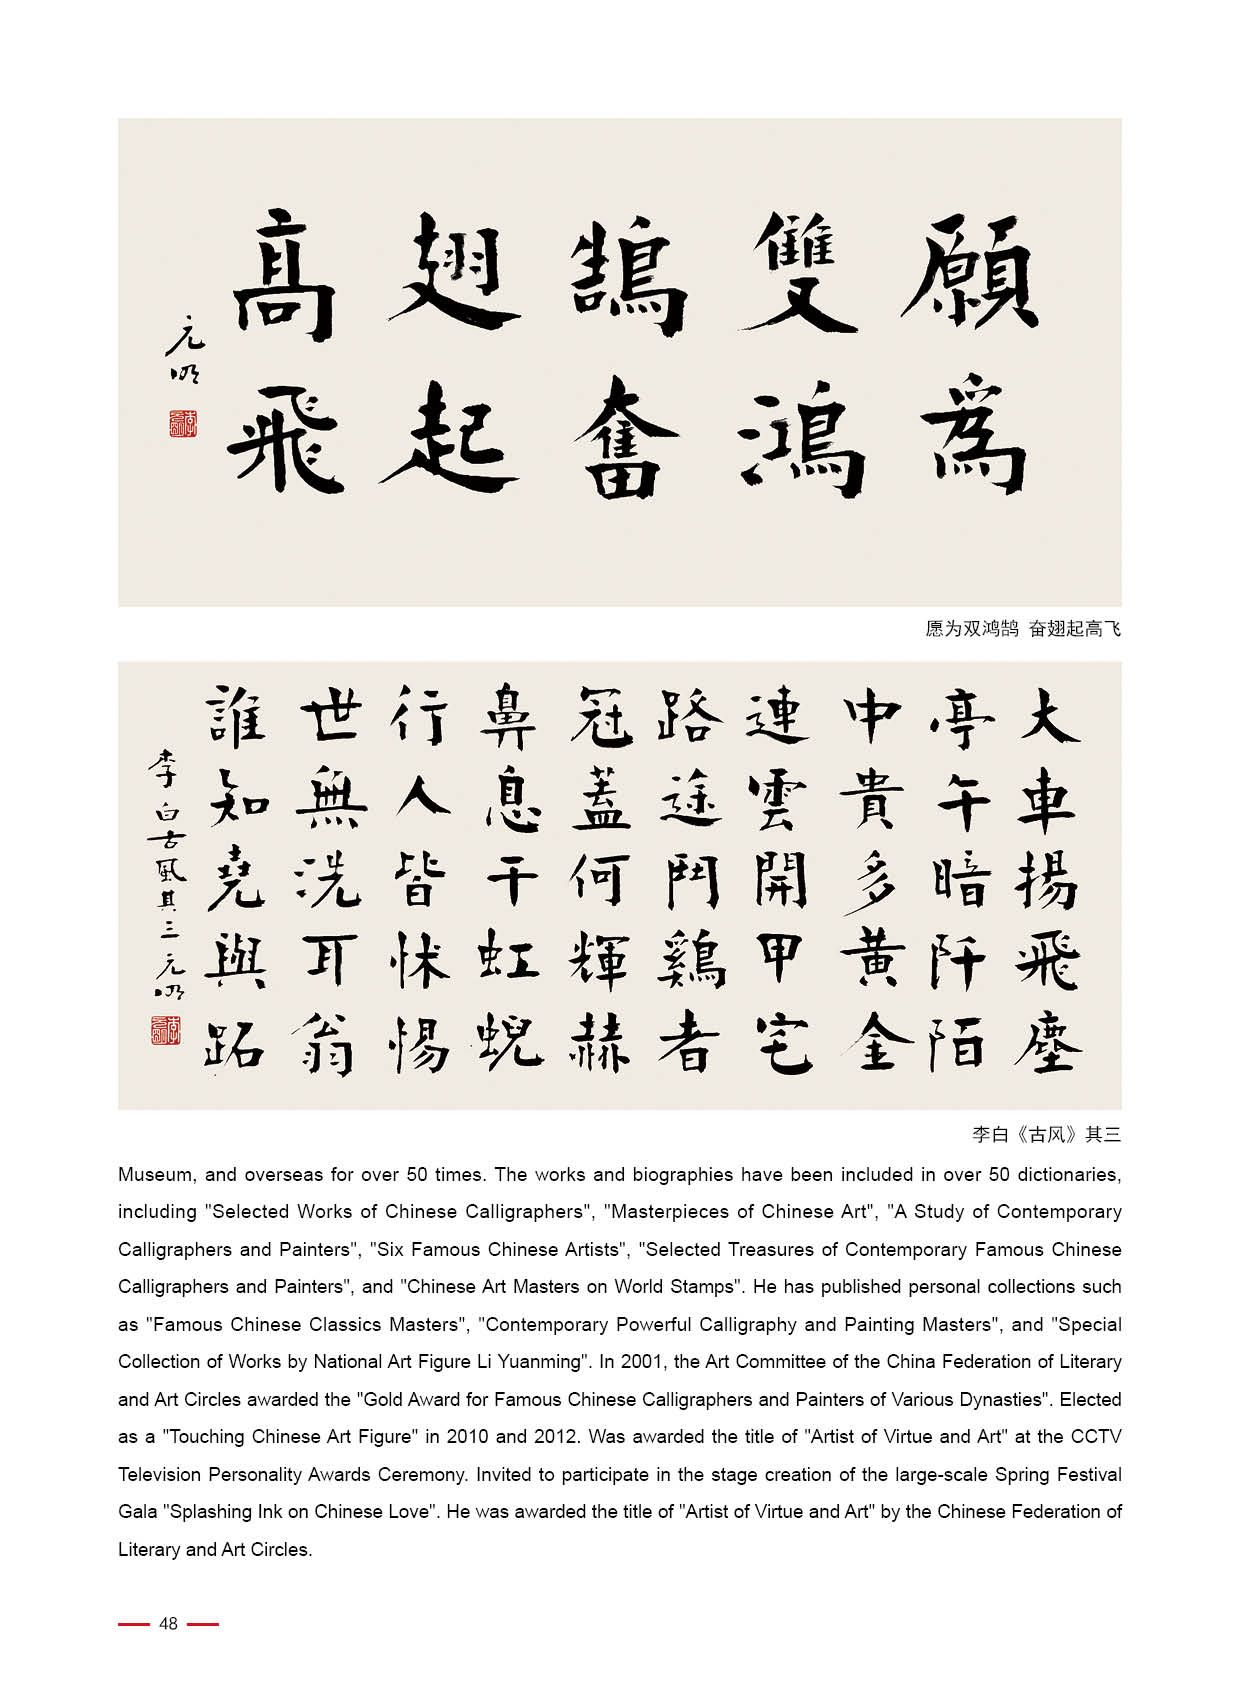 願為
雙鴻
鵠奮
翅起
高飛
元明
愿为双鸿鹄 奋翅起高飞
大車揚飛塵
亭午暗阡陌
中貴多黃金
連雲開甲宅
路途鬥鷄者
冠蓋何輝赫
鼻息干虹蜺
行人皆怵惕
世無洗耳翁
誰知堯與跖
李白古風其三元明
李白《古风》其三
Museum, and overseas for over 50 times. The works and biographies have been included in over 50 dictionaries,
including "Selected Works of Chinese Calligraphers", "Masterpieces of Chinese Art", "A Study of Contemporary
Calligraphers and Painters", "Six Famous Chinese Artists", "Selected Treasures of Contemporary Famous Chinese
Calligraphers and Painters", and "Chinese Art Masters on World Stamps". He has published personal collections such
as "Famous Chinese Classics Masters", "Contemporary Powerful Calligraphy and Painting Masters", and "Special
Collection of Works by National Art Figure Li Yuanming". In 2001, the Art Committee of the China Federation of Literary
and Art Circles awarded the "Gold Award for Famous Chinese Calligraphers and Painters of Various Dynasties". Elected
as a "Touching Chinese Art Figure" in 2010 and 2012. Was awarded the title of "Artist of Virtue and Art" at the CCTV
Television Personality Awards Ceremony. Invited to participate in the stage creation of the large-scale Spring Festival
Gala "Splashing Ink on Chinese Love". He was awarded the title of "Artist of Virtue and Art" by the Chinese Federation of
Literary and Art Circles.
48